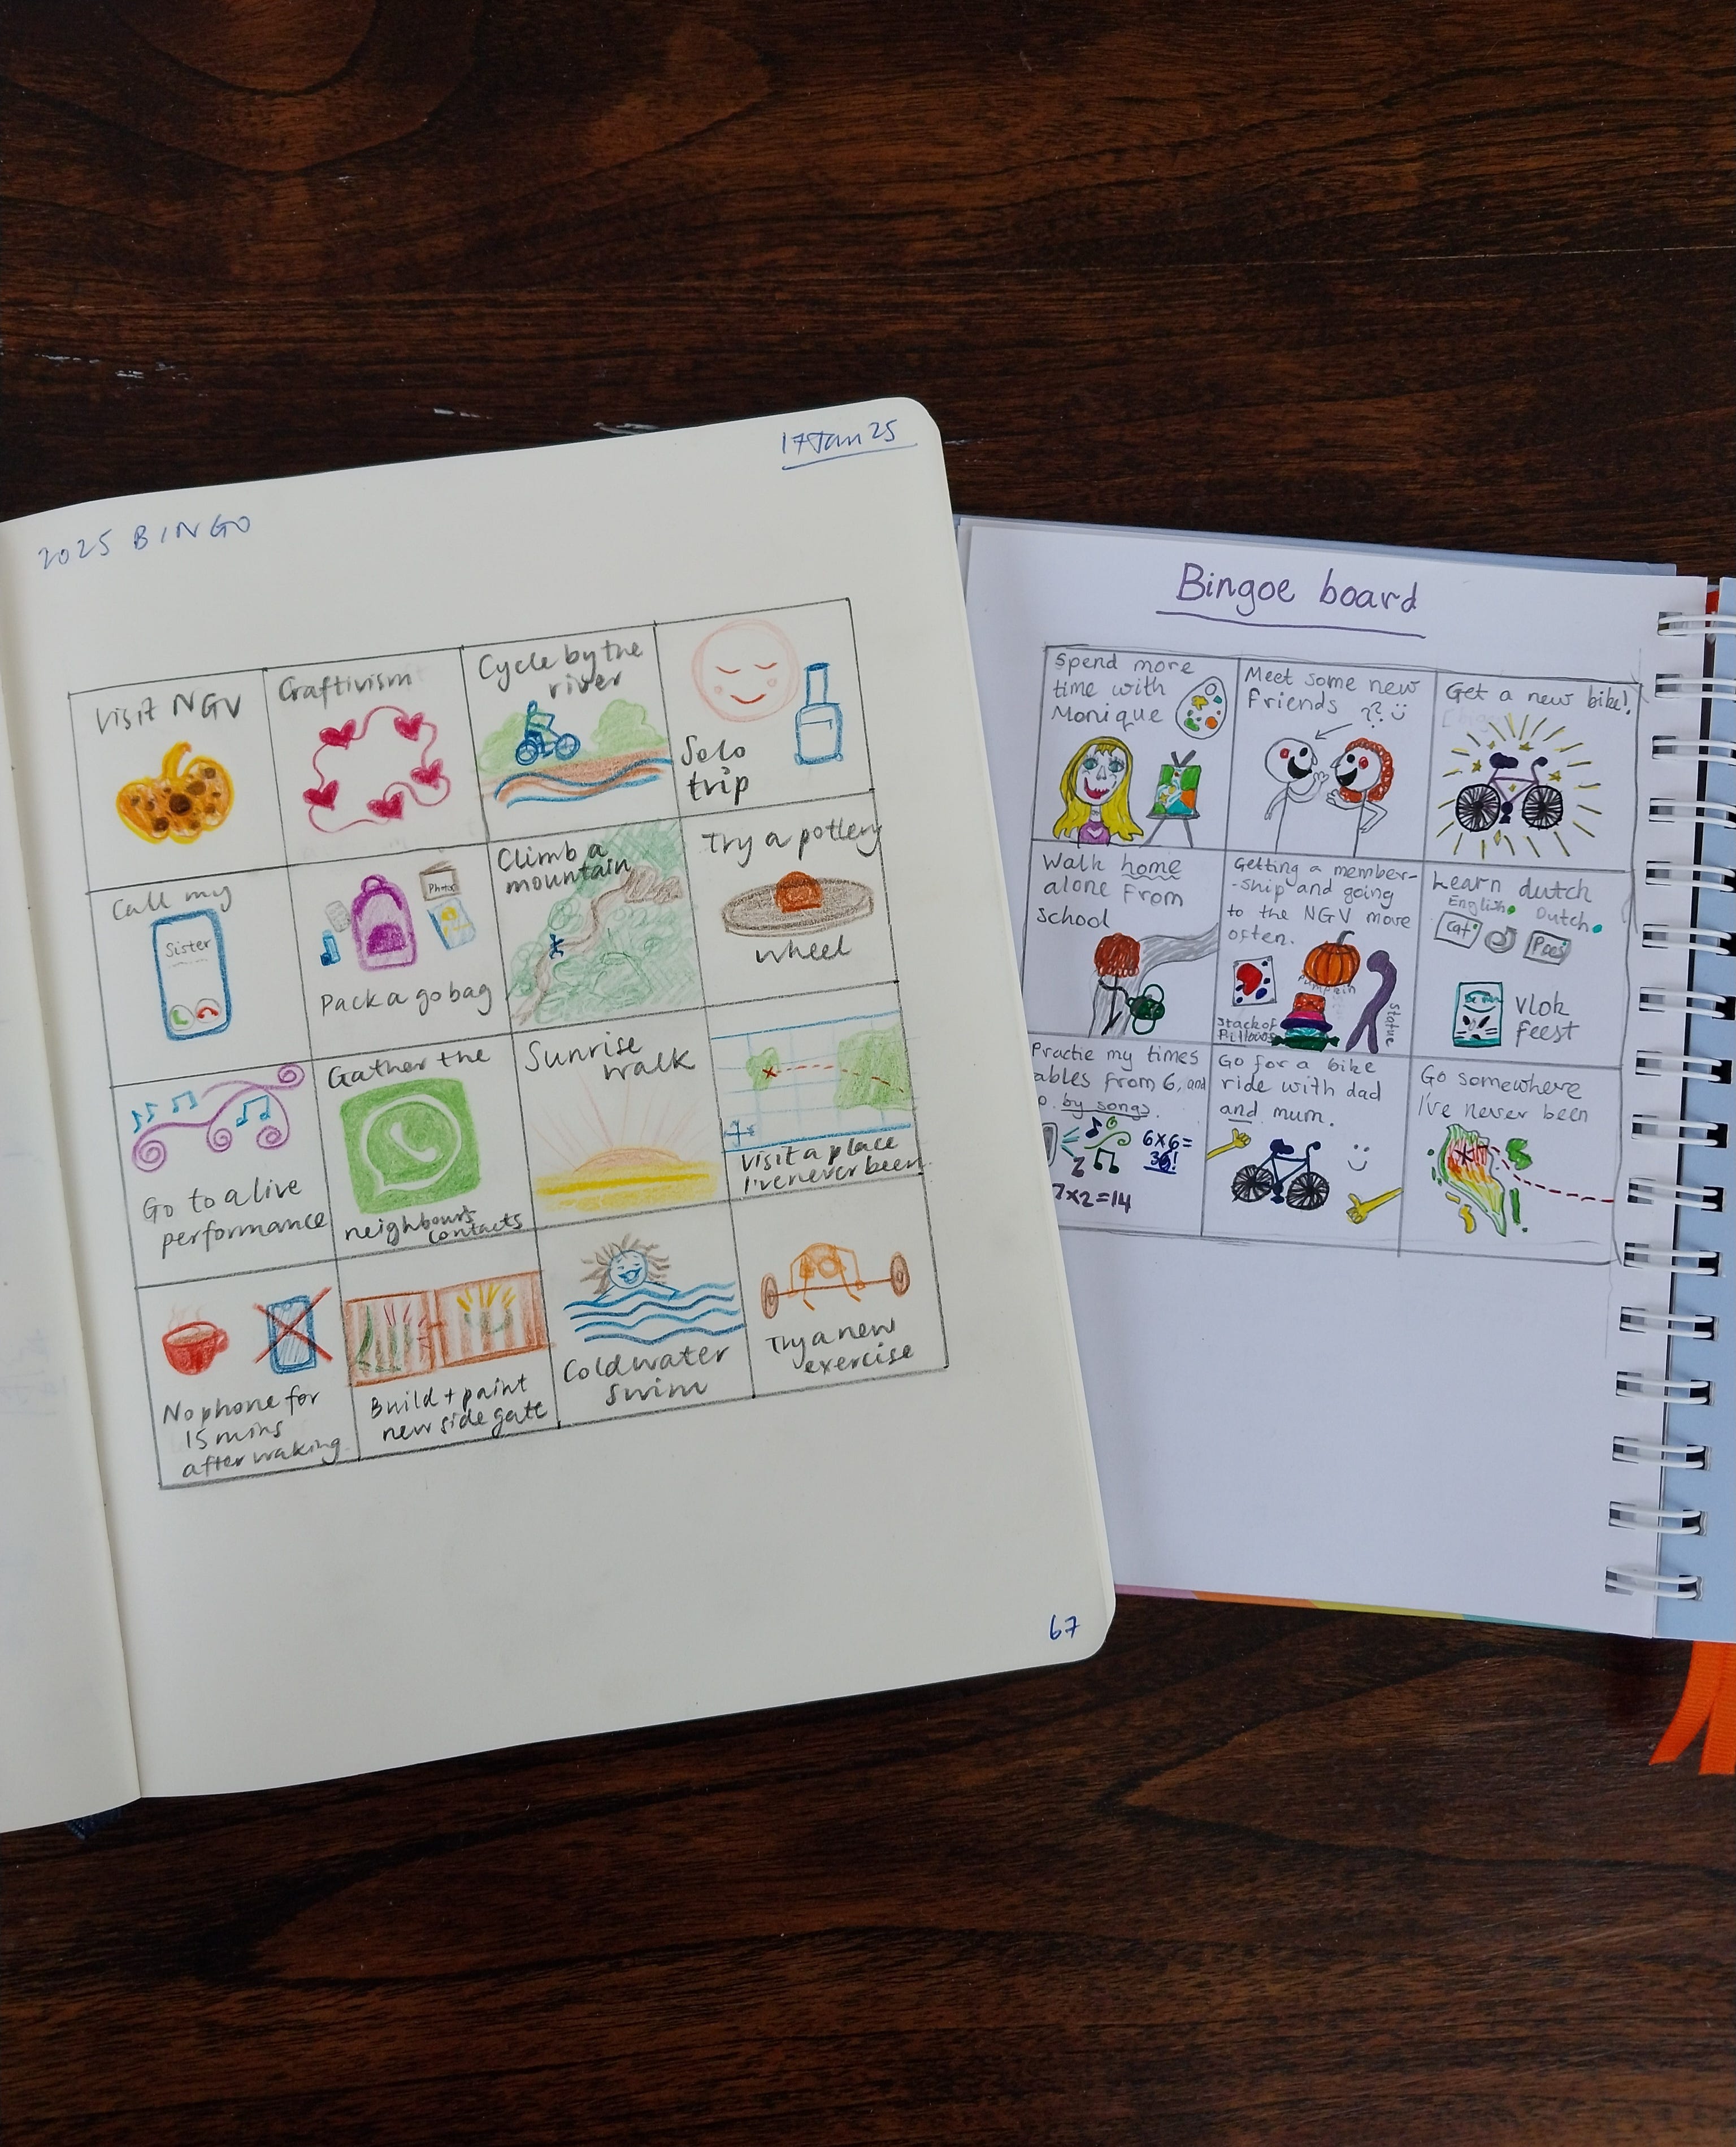 17 Jan 25
2025 BINGO
Visit NGV
Craftivism
Cycle by the
river
Solo
trip
Call my
Sister
Photo
Pack a go bag
Climb a
mountain
Try a pottery
wheel
Go to a live
performance
Gather the
neighbours
contacts
Sunrise
walk
Visit a place
I've never been
No phone for
15 mins
after waking
Build + paint
new side gate
Cold water
swim
Try a new
exercise
67
Bingoe board
Spend more
time with
Monique
Meet some new
friends
??
Get a new bike!
Walk home
alone from
school
Getting a member-
-ship and going
to the NGV more
often.
Pumpkin
Stack of
Pillows
Statue
Learn dutch
English Dutch
Cat Poes
Vlok
feest
Practie my times
ables from 6, and
by songs.
6x6=
36!
7x2=14
Go for a bike
ride with dad
and mum.
Go somewhere
I've never been